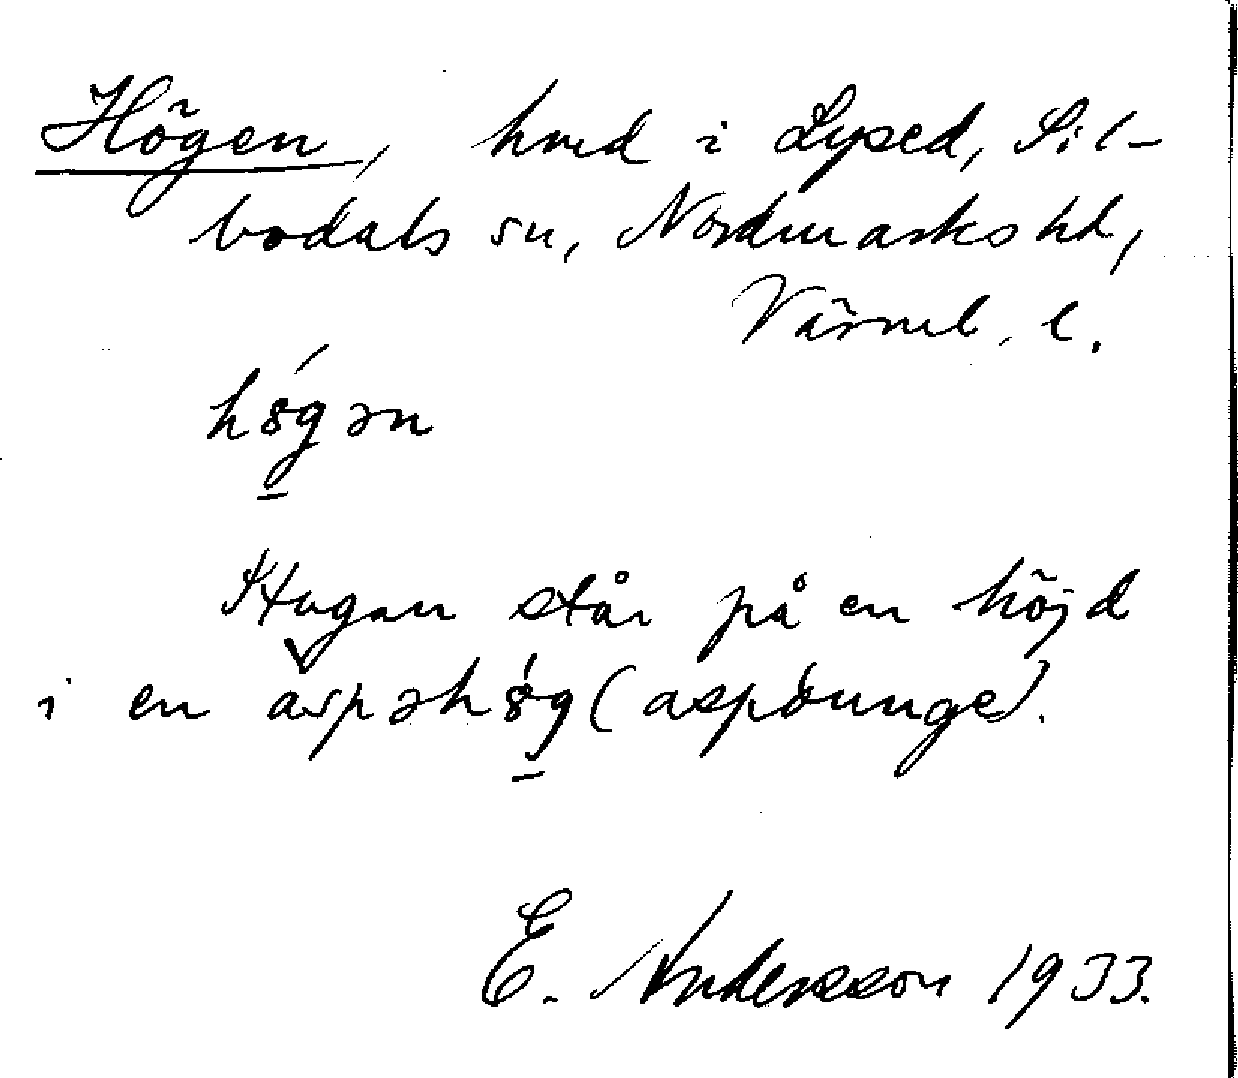 Högen, hmd i Lysed, Sil-
bodals sn, Nordmarks hd,
Värml. l.
hö́gən
Stugan står på en höjd
i en àspəhö́g (aspdunge).
E. Andersson 1933.